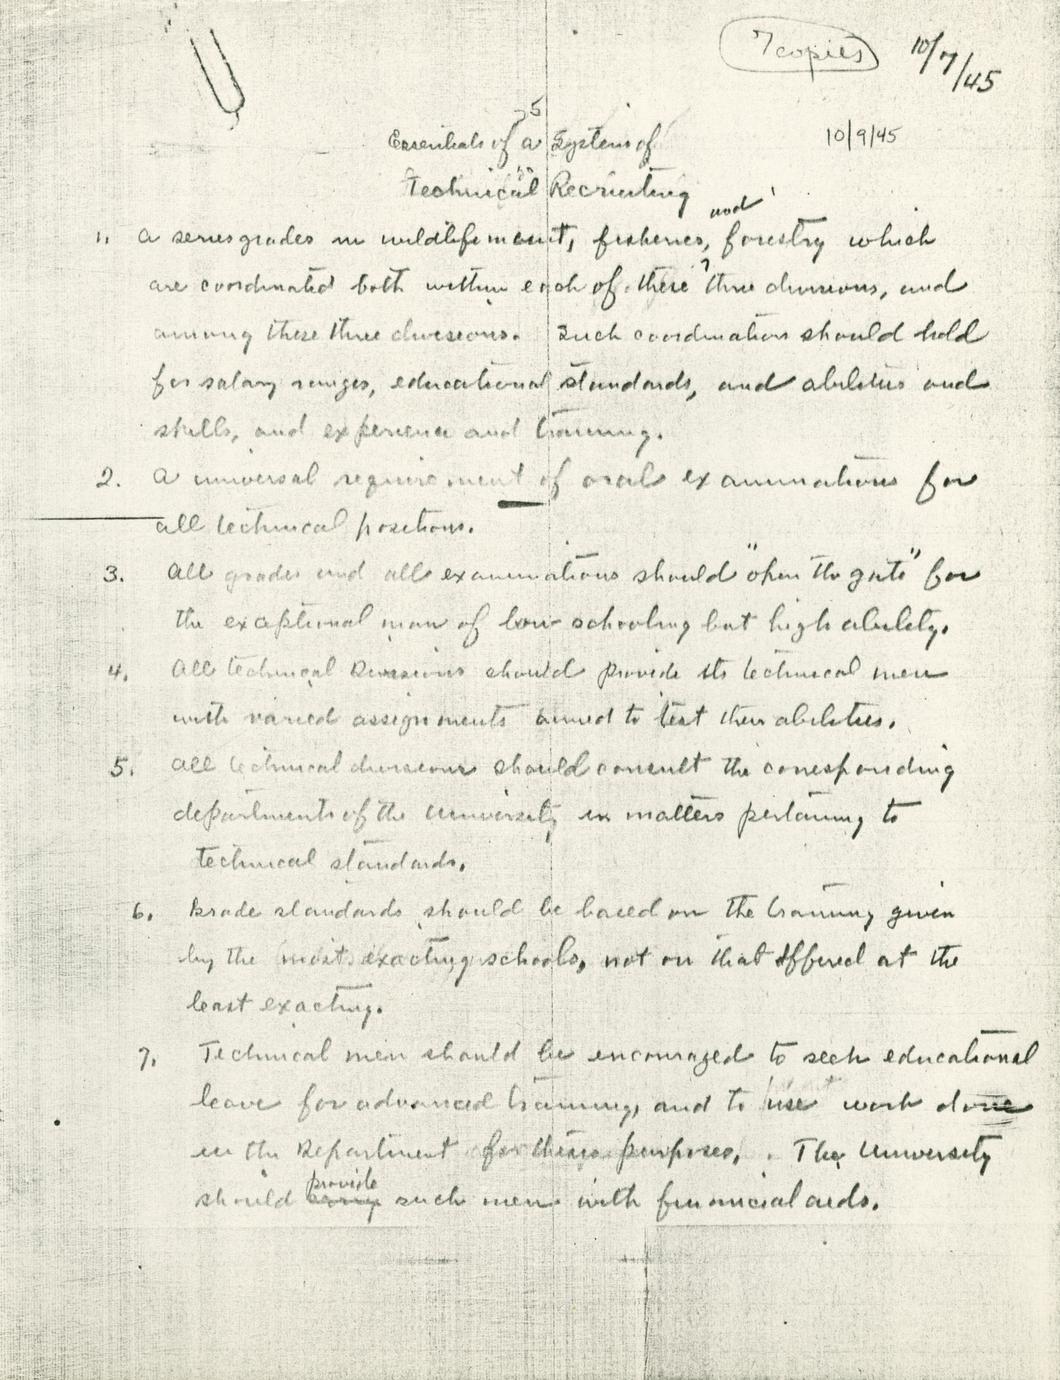 7 copies
10/7/45
10/9/45
5
Essentials of a System of
Technical Recruiting
and
1. A series grades in wildlife mgmt, fisheries, forestry which
are coordinated both within each of these three divisions, and
among these three divisions. Such coordination should hold
for salary ranges, educational standards, and abilities and
skills, and experience and training.
2. A universal requirement of oral examinations for
all technical positions.
3. All grades and all examinations should "open the gate" for
the exceptional man of low schooling but high ability.
4. All technical Divisions should provide its technical men
with varied assignments aimed to test their abilities.
5. All technical divisions should consult the corresponding
departments of the University in matters pertaining to
technical standards.
6. Grade standards should be based on the training given
by the most exacting schools, not on that offered at the
least exacting.
7. Technical men should be encouraged to seek educational
leave for advanced training, and to use work done
in the Department for thesis purposes. The University
provide
should such men with financial aids.